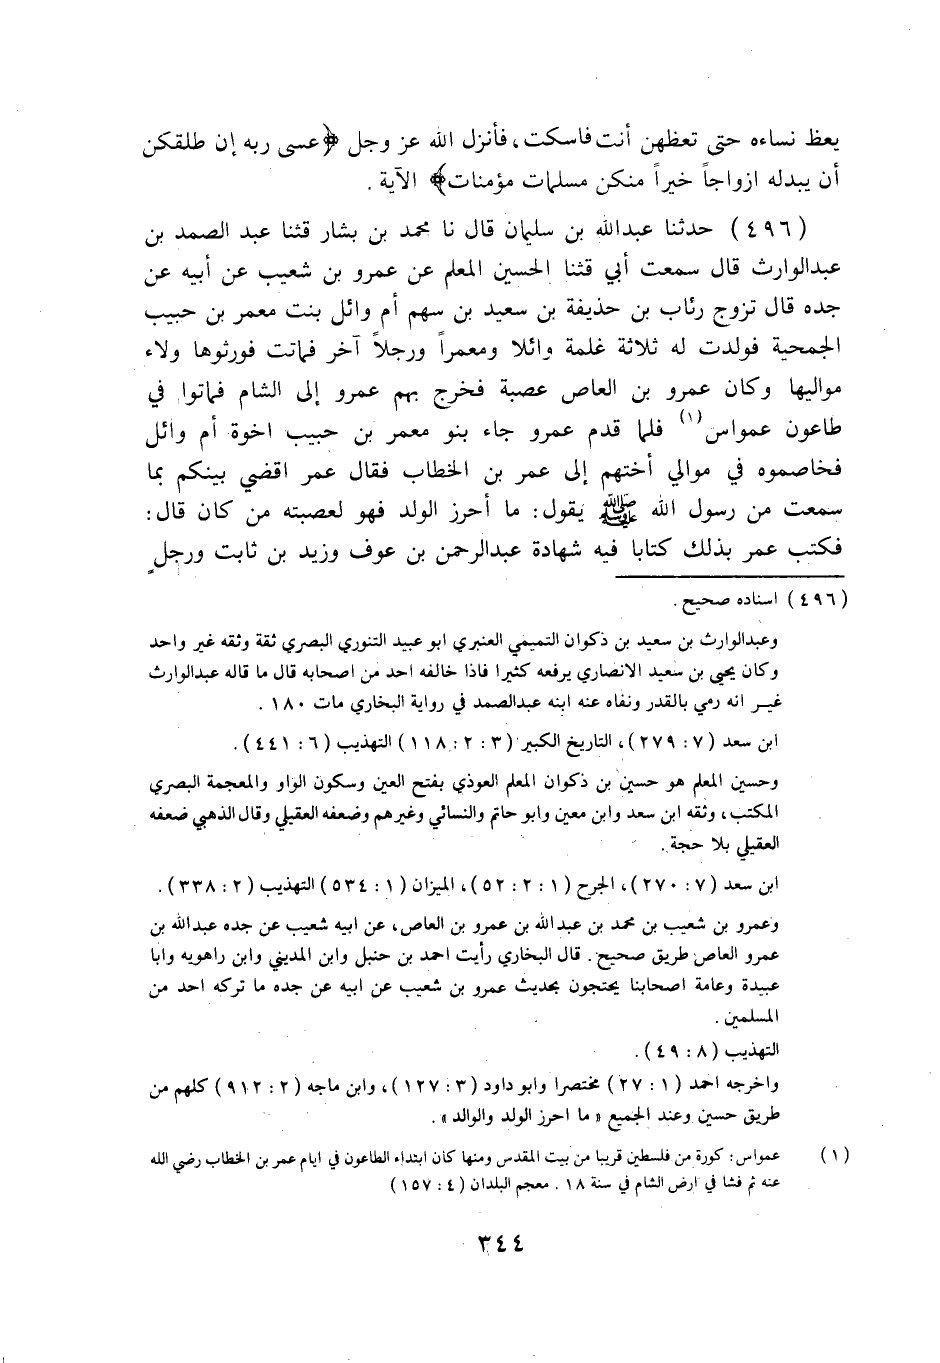 يعظ نساءه حتى تعظهن أنت فاسكت، فأنزل الله عز وجل ﴿عسى ربه إن طلقكن
أن يبدله ازواجاً خيراً منكن مسلمات مؤمنات﴾ الآية .
(٤٩٦) حدثنا عبدالله بن سليمان قال نا محمد بن بشار قثنا عبد الصمد بن
عبدالوارث قال سمعت أبي قثنا الحسين المعلم عن عمرو بن شعيب عن أبيه عن
جده قال تزوج رئاب بن حذيفة بن سعيد بن سهم أم وائل بنت معمر بن حبيب
الجمحية فولدت له ثلاثة غلمة وائلا ومعمراً ورجلاً آخر فماتت فورثوها ولاء
مواليها وكان عمرو بن العاص عصبة فخرج بهم عمرو إلى الشام فماتوا في
طاعون عمواس(١) فلما قدم عمرو جاء بنو معمر بن حبيب اخوة أم وائل
فخاصموه في موالي أختهم إلى عمر بن الخطاب فقال عمر اقضي بينكم بما
سمعت من رسول الله ﷺ يقول: ما أحرز الولد فهو لعصبته من كان قال:
فكتب عمر بذلك كتابا فيه شهادة عبدالرحمن بن عوف وزيد بن ثابت ورجل
(٤٩٦) اسناده صحيح .
وعبدالوارث بن سعيد بن ذكوان التميمي العنبري ابو عبيد التنوري البصري ثقة وثقه غير واحد
وكان يحيى بن سعيد الانصاري يرفعه كثيرا فاذا خالفه احد من اصحابه قال ما قاله عبدالوارث
غير انه رمي بالقدر ونفاه عنه ابنه عبدالصمد في رواية البخاري مات ١٨٠ .
ابن سعد (٧: ٢٧٩)، التاريخ الكبير (٣: ٢: ١١٨) التهذيب (٦: ٤٤١).
وحسين المعلم هو حسين بن ذكوان المعلم العوذي بفتح العين وسكون الواو والمعجمة البصري
المكتب، وثقه ابن سعد وابن معين وابو حاتم والنسائي وغيرهم وضعفه العقيلي وقال الذهبي ضعفه
العقيلي بلا حجة .
ابن سعد (٧: ٢٧٠)، الجرح (١: ٢: ٥٢)، الميزان (١: ٥٣٤) التهذيب (٢: ٣٣٨).
وعمرو بن شعيب بن محمد بن عبدالله بن عمرو بن العاص، عن ابيه شعيب عن جده عبدالله بن
عمرو العاص طريق صحيح . قال البخاري رأيت احمد بن حنبل وابن المديني وابن راهويه وابا
عبيدة وعامة اصحابنا يحتجون بحديث عمرو بن شعيب عن ابيه عن جده ما تركه احد من
المسلمين .
التهذيب (٨: ٤٩).
واخرجه احمد (١: ٢٧) مختصرا وابو داود (٣: ١٢٧)، وابن ماجه (٢: ٩١٢) كلهم من
طريق حسين وعند الجميع « ما احرز الولد والوالد ».
(١) عمواس: كورة من فلسطين قريبا من بيت المقدس ومنها كان ابتداء الطاعون في ايام عمر بن الخطاب رضي الله
عنه ثم فشا في ارض الشام في سنة ١٨ . معجم البلدان (٤: ١٥٧)
٣٤٤